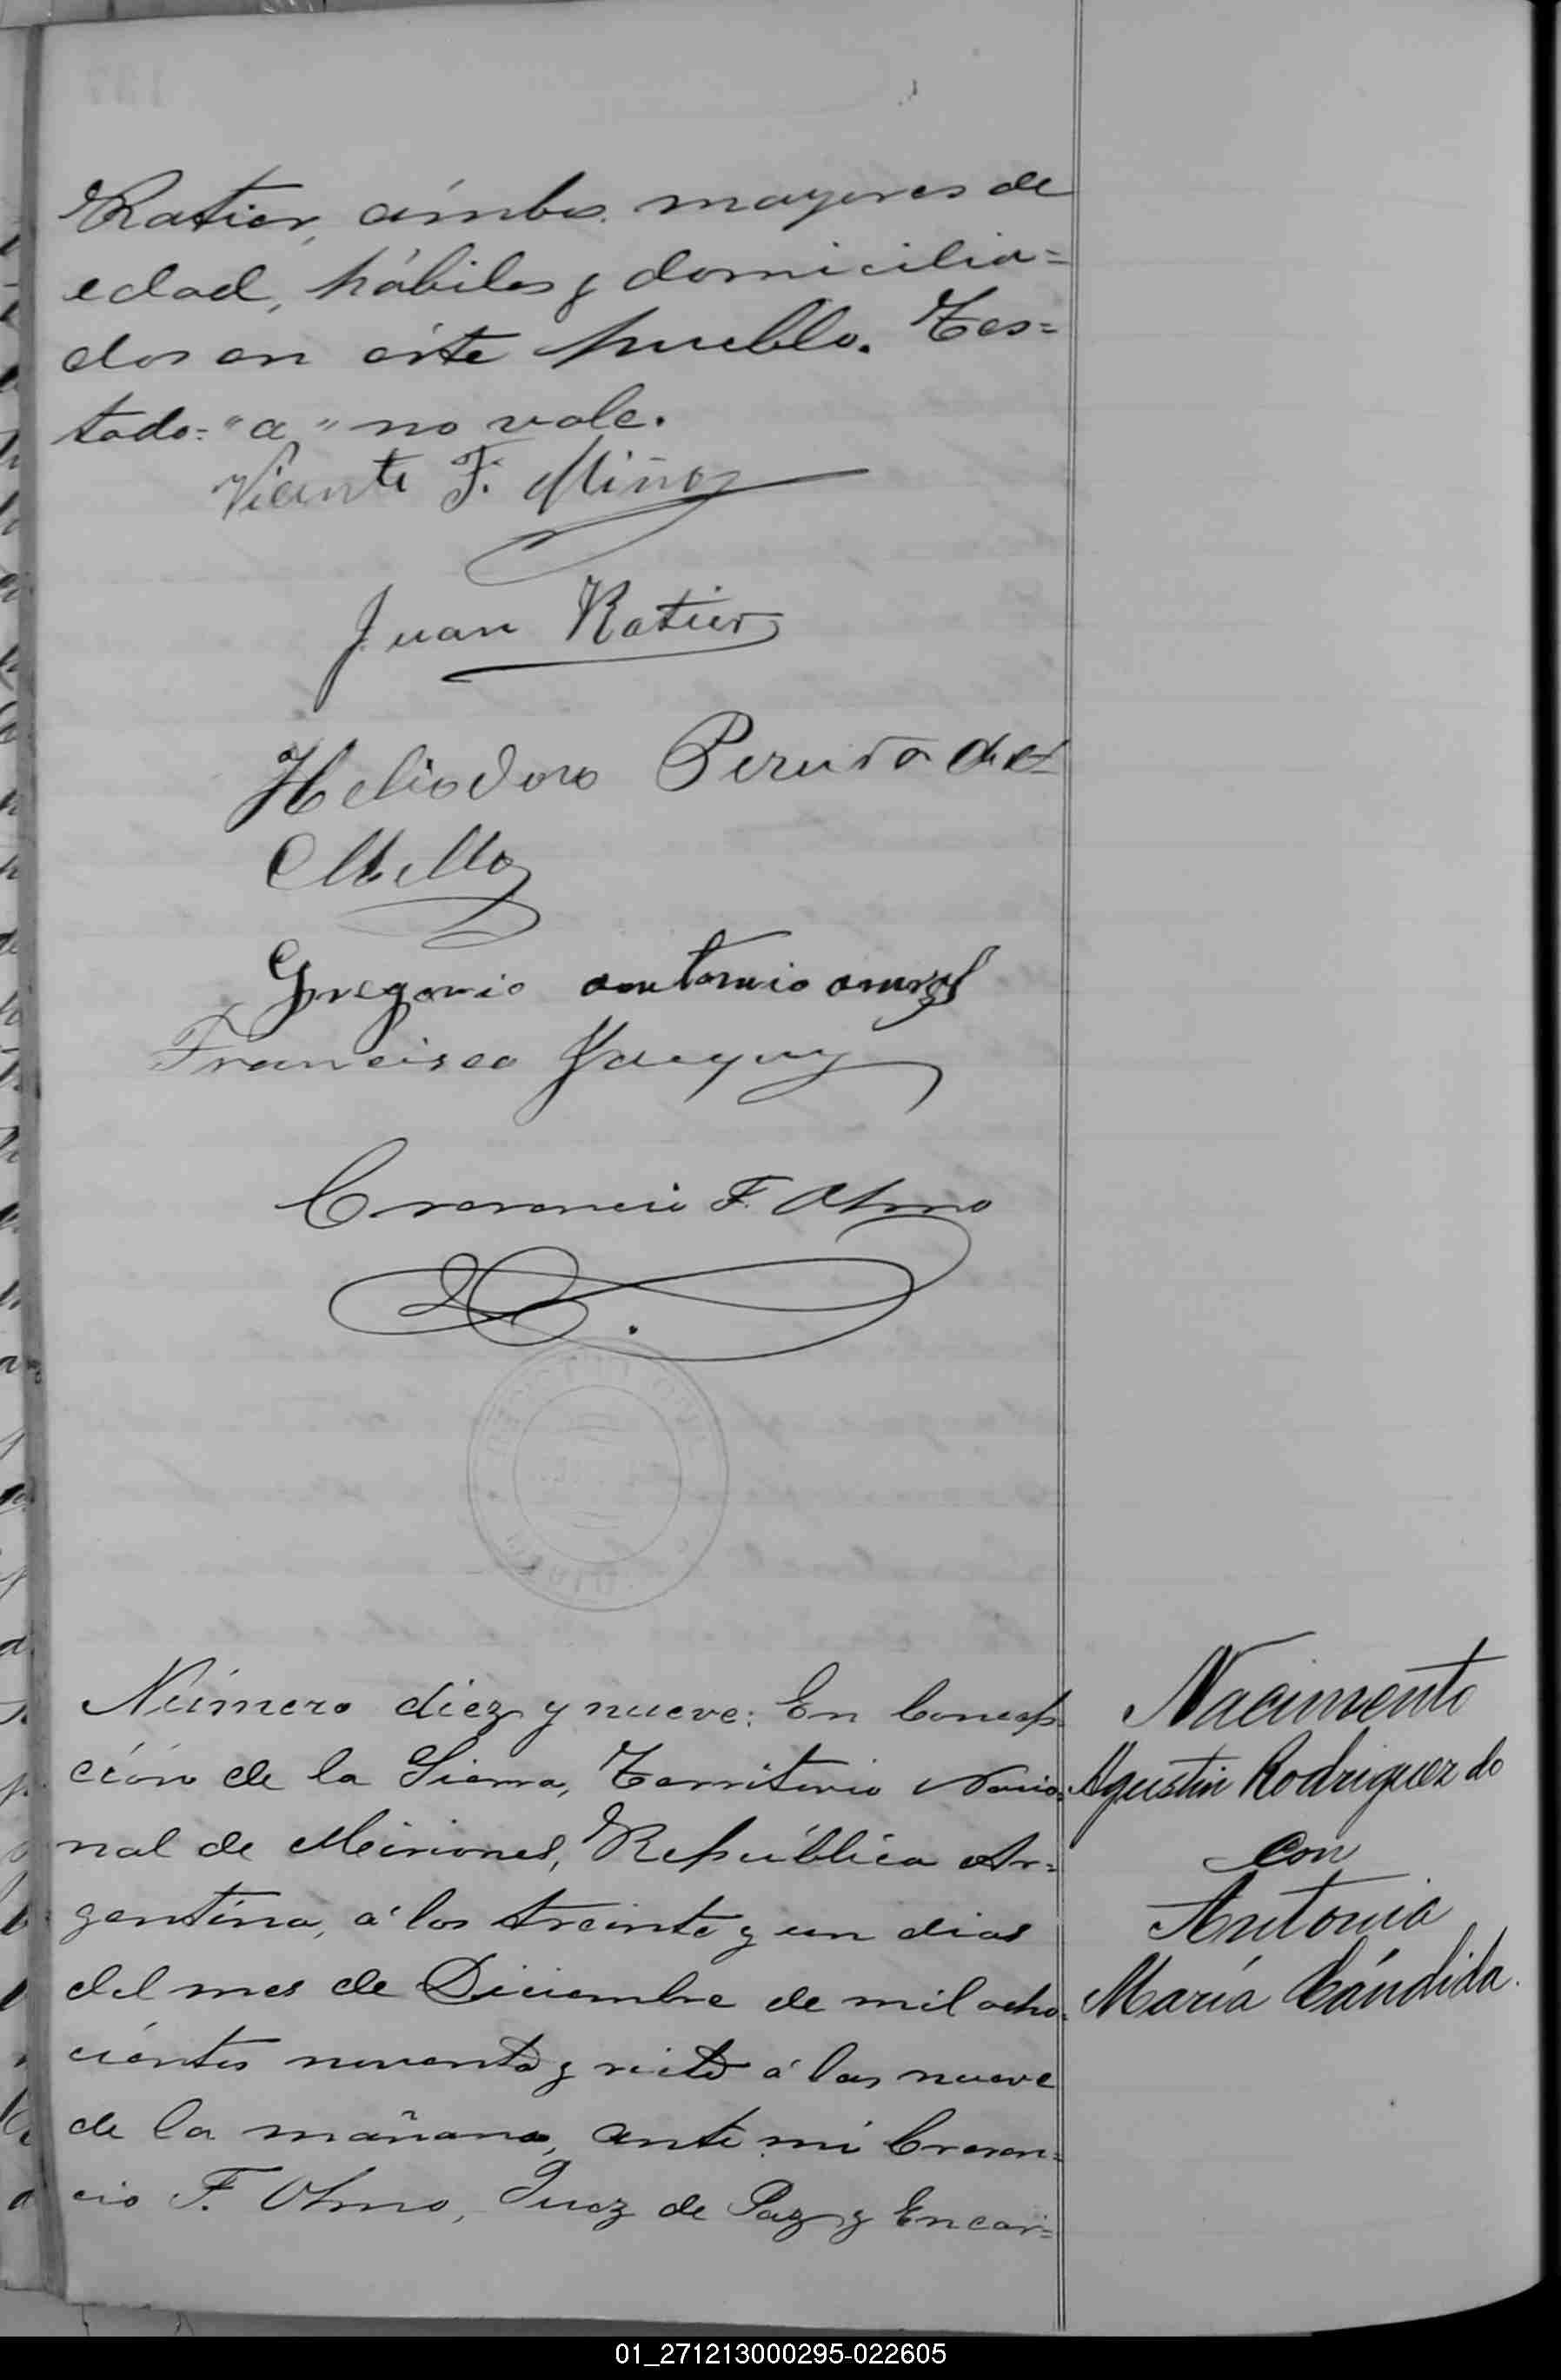 Ratier, ámbos mayores de
edad, hábiles y domicilia=
dos en éste pueblo. Tes=
tado="a" no vale.
Vicente F. Miño
Juan Ratier
Heliodoro
Mello
Gregorio antonio
Francisco
Crecencio F. Olmo
Número diez y nueve: En Concep=
ción de la Sierra, Territorio Nacio=
nal de Misiones, República Ar=
gentina, á los treinta y un dias
del mes de Diciembre de mil ocho=
cientos noventa y siete á las nueve
de la mañana, ante mi Crecen=
cio F. Olmo, Juez de Paz y Encar=
Nacimento
Agustin Rodriguez do
con
Antonia
María Cándida.
01_271213000295-022605